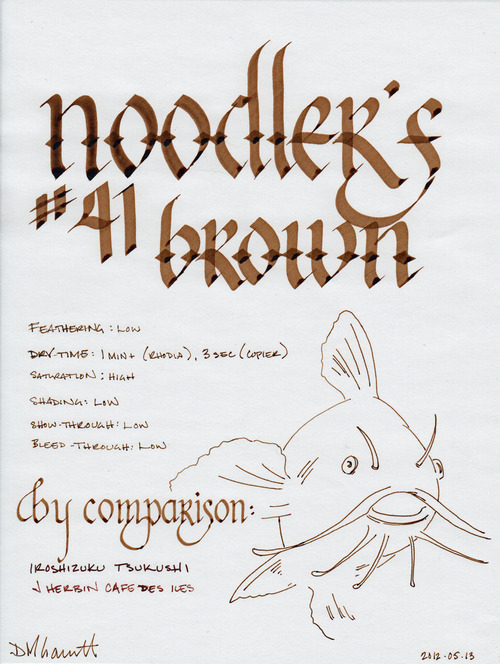 noodler's
#41
brown
Feathering: Low
Dry-time: 1 min+ (Rhodia), 3 sec (copier)
Saturation: High
Shading: Low
Show-through: Low
Bleed-through: Low
by comparison:
Iroshizuku Tsukushi
J Herbin Cafe des Iles
2012.05.13